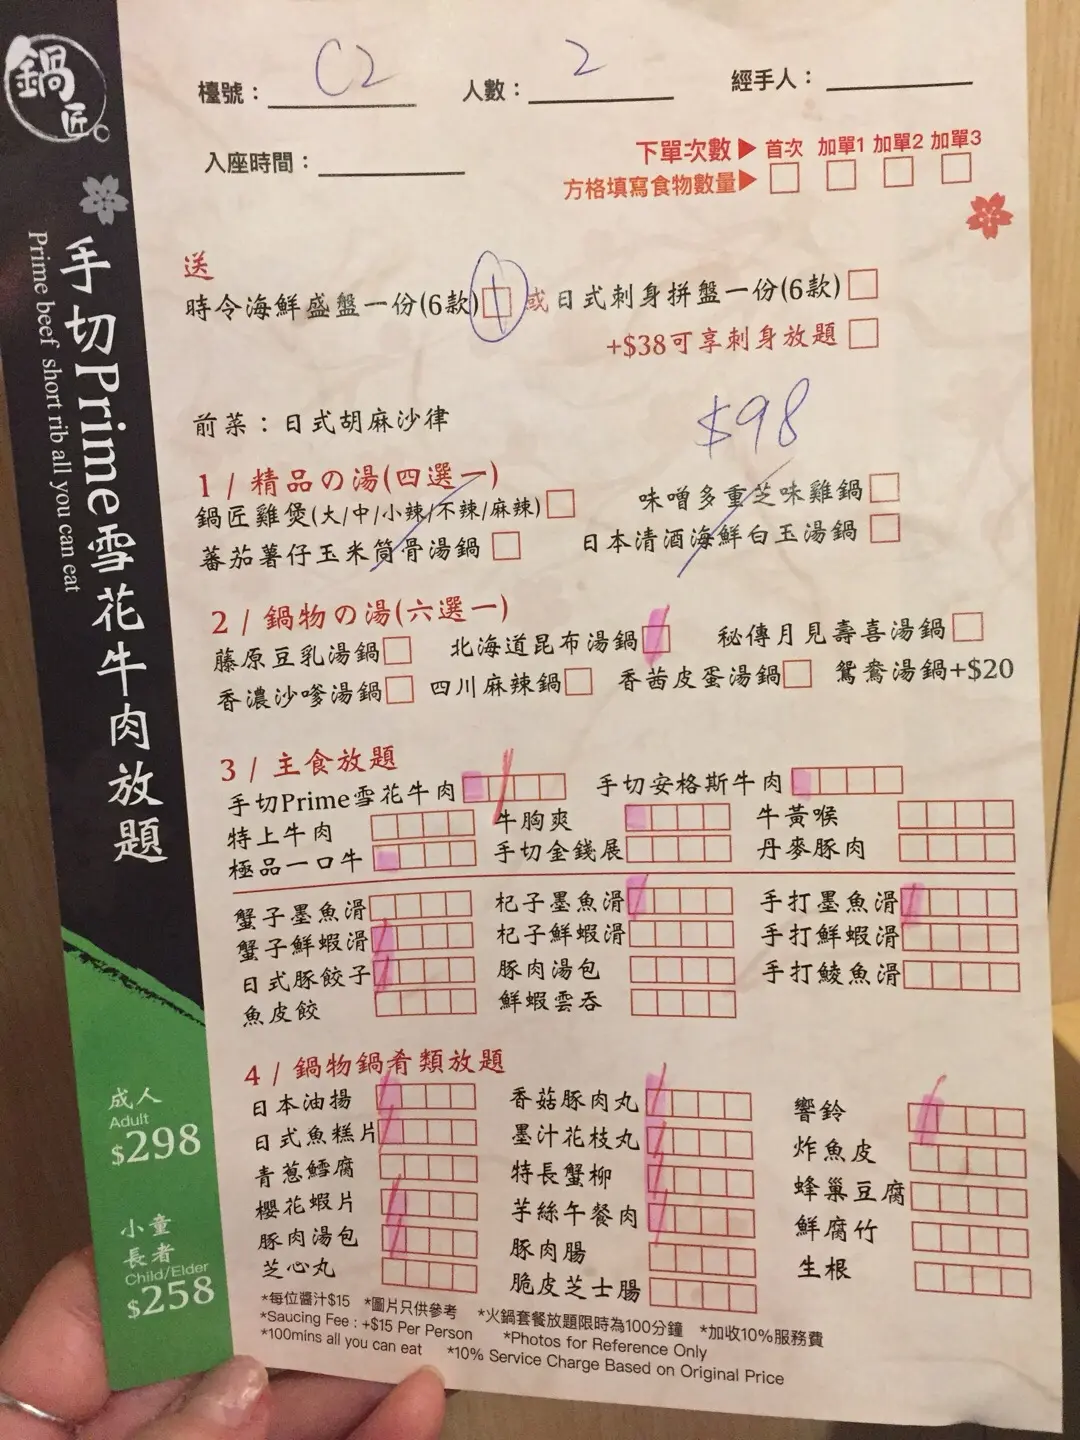 鍋匠。
檯號： C2 人數： 2 經手人：
入座時間：
下單次數▶ 首次 加單1 加單2 加單3
方格填寫食物數量▶
送
時令海鮮盛盤一份(6款) 或日式刺身拼盤一份(6款)
+$38可享刺身放題
前菜：日式胡麻沙律
$98
1 / 精品の湯(四選一)
鍋匠雞煲(大/中/小辣/不辣/麻辣) 味噌多重芝味雞鍋
蕃茄薯仔玉米筒骨湯鍋 日本清酒海鮮白玉湯鍋
2 / 鍋物の湯(六選一)
藤原豆乳湯鍋 北海道昆布湯鍋 秘傳月見壽喜湯鍋
香濃沙嗲湯鍋 四川麻辣鍋 香茜皮蛋湯鍋 鴛鴦湯鍋+$20
3 / 主食放題
手切Prime雪花牛肉 手切安格斯牛肉
特上牛肉 牛胸爽 牛黃喉
極品一口牛 手切金錢展 丹麥豚肉
蟹子墨魚滑 杞子墨魚滑 手打墨魚滑
蟹子鮮蝦滑 杞子鮮蝦滑 手打鮮蝦滑
日式豚餃子 豚肉湯包 手打鯪魚滑
魚皮餃 鮮蝦雲吞
4 / 鍋物鍋肴類放題
日本油揚 香菇豚肉丸 響鈴
日式魚糕片 墨汁花枝丸 炸魚皮
青蔥鱈腐 特長蟹柳 蜂巢豆腐
櫻花蝦片 芋絲午餐肉 鮮腐竹
豚肉湯包 豚肉腸 生根
芝心丸 脆皮芝士腸
*每位醬汁$15 *圖片只供參考 *火鍋套餐放題限時為100分鐘 *加收10%服務費
*Saucing Fee : +$15 Per Person *Photos for Reference Only
*100mins all you can eat *10% Service Charge Based on Original Price
手切Prime雪花牛肉放題
Prime beef short rib all you can eat
成人
Adult
$298
小童
長者
Child/Elder
$258